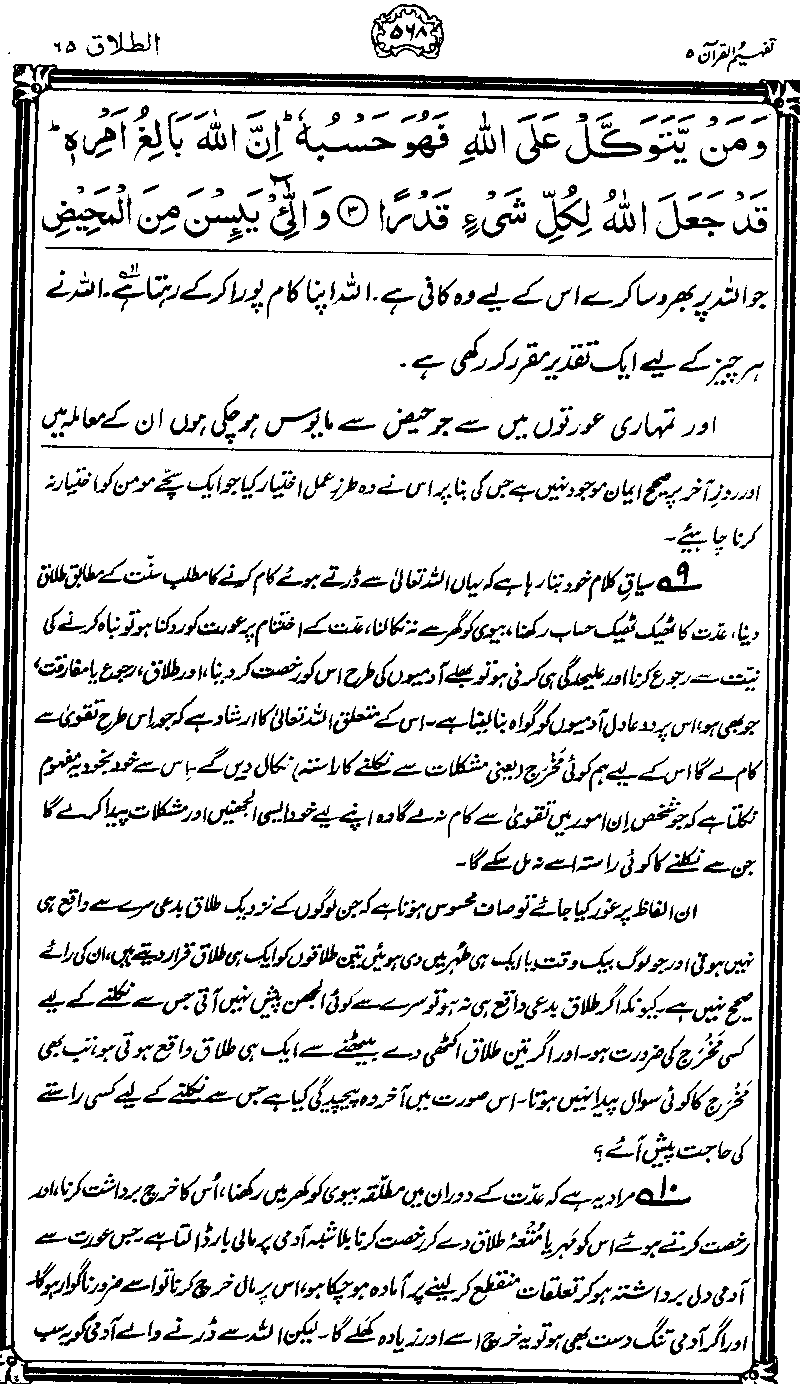 تفہیم القرآن ۵
۵۶۸
الطلاق ۶۵
وَمَنْ يَّتَوَكَّلْ عَلَى اللّٰهِ فَهُوَ حَسْبُهٗ ؕ اِنَّ اللّٰهَ بَالِغُ اَمْرِهٖ ؕ
قَدْ جَعَلَ اللّٰهُ لِكُلِّ شَیْءٍ قَدْرًا ۳ وَالّٰٓـِٔیْ یَئِسْنَ مِنَ الْمَحِیْضِ
جو اللہ پر بھروسا کرے اس کے لیے وہ کافی ہے۔ اللہ اپنا کام پورا کر کے رہتا ہے۔ اللہ نے
ہر چیز کے لیے ایک تقدیر مقرر کر رکھی ہے۔
اور تمہاری عورتوں میں سے جو حیض سے مایوس ہو چکی ہوں ان کے معاملہ میں
اور روزِ آخر پر صحیح ایمان موجود نہیں ہے جس کی بنا پر اس نے وہ طرزِ عمل اختیار کیا جو ایک سچے مومن کو اختیار نہ
کرنا چاہیئے۔
۹ سیاقِ کلام خود بتا رہا ہے کہ یہاں اللہ تعالیٰ سے ڈرتے ہوئے کام کرنے کا مطلب سنّت کے مطابق طلاق
دینا، عدّت کا ٹھیک ٹھیک حساب رکھنا، بیوی کو گھر سے نہ نکالنا، عدّت کے اختتام پر عورت کو روکنا ہو تو نباہ کرنے کی
نیّت سے رجوع کرنا اور علیحدگی ہی کرنی ہو تو بھلے آدمیوں کی طرح اس کو رخصت کر دینا، اور طلاق، رجوع یا مفارقت،
جو بھی ہو، اس پر دو عادل آدمیوں کو گواہ بنا لینا ہے۔ اس کے متعلق اللہ تعالیٰ کا ارشاد ہے کہ جو اس طرح تقویٰ سے
کام لے گا اس کے لیے ہم کوئی مَخْرَج (یعنی مشکلات سے نکلنے کا راستہ) نکال دیں گے۔ اس سے خود بخود یہ مفہوم
نکلتا ہے کہ جو شخص اِن امور میں تقویٰ سے کام نہ لے گا وہ اپنے لیے خود ایسی الجھنیں اور مشکلات پیدا کر لے گا
جن سے نکلنے کا کوئی راستہ اسے نہ مل سکے گا۔
ان الفاظ پر غور کیا جائے تو صاف محسوس ہوتا ہے کہ جن لوگوں کے نزدیک طلاق بدعی سرے سے واقع ہی
نہیں ہوتی اور جو لوگ بیک وقت یا ایک ہی طُہر میں دی ہوئیں تین طلاقوں کو ایک ہی طلاق قرار دیتے ہیں، ان کی رائے
صحیح نہیں ہے۔ کیونکہ اگر طلاق بدعی واقع ہی نہ ہو تو سرے سے کوئی الجھن پیش نہیں آتی جس سے نکلنے کے لیے
کسی مَخْرَج کی ضرورت ہو۔ اور اگر تین طلاق اکٹھی دے بیٹھنے سے ایک ہی طلاق واقع ہوتی ہو، تب بھی
مَخْرَج کا کوئی سوال پیدا نہیں ہوتا۔ اس صورت میں آخر وہ پیچیدگی کیا ہے جس سے نکلنے کے لیے کسی راستے
کی حاجت پیش آئے؟
۱۰ مراد یہ ہے کہ عدّت کے دوران میں مطلّقہ بیوی کو گھر میں رکھنا، اُس کا خرچ برداشت کرنا، اور
رخصت کرتے ہوئے اس کو مَہر یا مُتْعَۂ طلاق دے کر رخصت کرنا بلاشبہ آدمی پر مالی بار ڈالتا ہے۔ جس عورت سے
آدمی دل برداشتہ ہو کر تعلقات منقطع کر لینے پر آمادہ ہو چکا ہو، اس پر مال خرچ کرنا تو اسے ضرور ناگوار ہوگا۔
اور اگر آدمی تنگ دست بھی ہو تو یہ خرچ اسے اور زیادہ کھلے گا۔ لیکن اللہ سے ڈرنے والے آدمی کو یہ سب